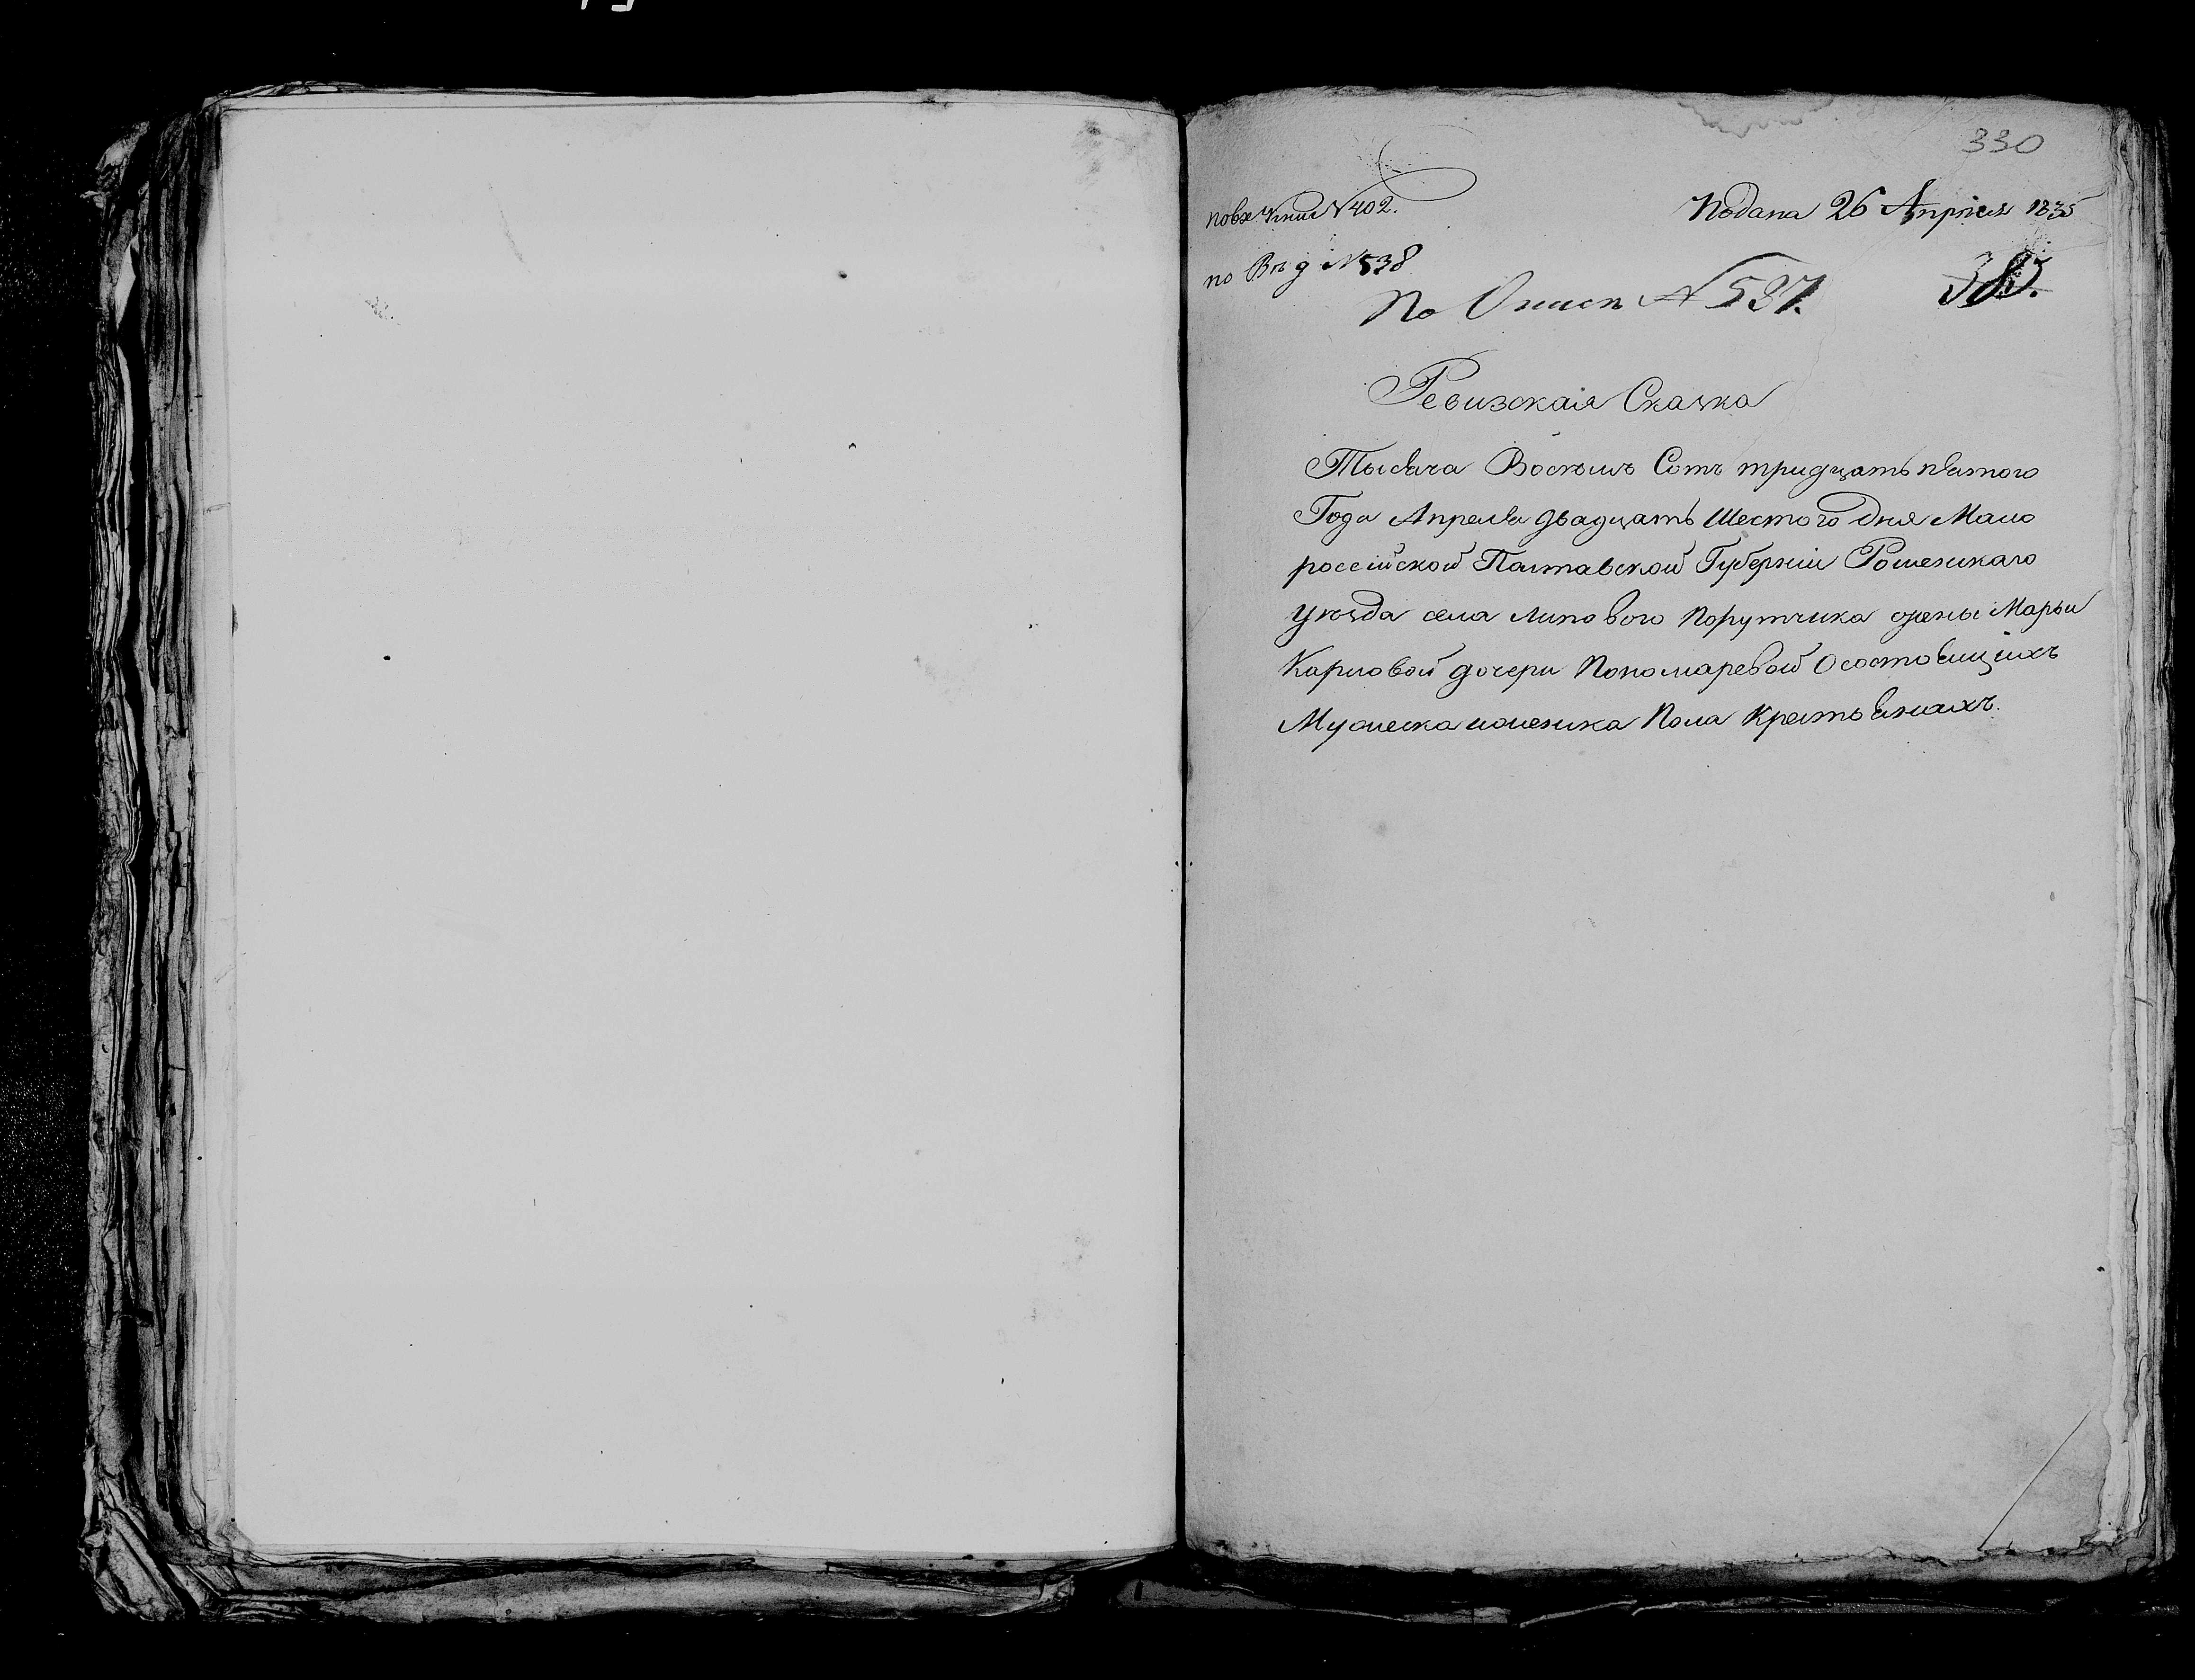 330
Подана 26 Апреля 1835
N 402.
по Вѣд N 538
По Описи N 537.
Ревизская Сказка
Тысяча Восемь Сотъ тридцать пятого
Года Апреля двадцать Шестого Дня Мало
россійской Полтавской Губерніи Роменскаго
уезда села Липового Порутчика жены Марьи
Карповой дочери Пономаревой О состоящихъ
Мужеска и женска Пола Крестьянахъ.